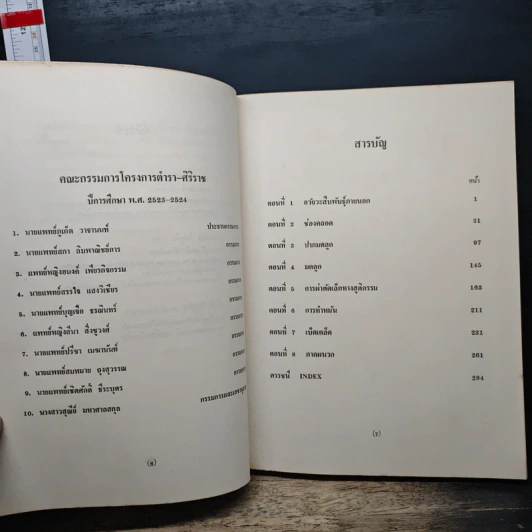 12
คณะกรรมการโครงการตำรา-ศิริราช
ปีการศึกษา พ.ศ. 2523-2524
1. นายแพทย์ภูเก็ต วาจานนท์ ประธานกรรมการ
2. นายแพทย์สภา ลิมพาณิชย์การ กรรมการ
3. แพทย์หญิงอนงค์ เพียรกิจกรรม กรรมการ
4. นายแพทย์สรรใจ แสงวิเชียร กรรมการ
5. นายแพทย์บุญเจือ ธรณินทร์ กรรมการ
6. แพทย์หญิงลีนา สิ่งชูวงศ์ กรรมการ
7. นายแพทย์ปรีชา เมฆานันท์ กรรมการ
8. นายแพทย์สมหมาย ถุงสุวรรณ กรรมการ
9. นายแพทย์เชิดศักดิ์ ธีระบุตร กรรมการ
10. นางสาวสุณีย์ มหาศาลสกุล กรรมการและเลขานุการ
(6)
สารบัญ
หน้า
ตอนที่ 1 อวัยวะสืบพันธุ์ภายนอก 1
ตอนที่ 2 ช่องคลอด 31
ตอนที่ 3 ปากมดลูก 97
ตอนที่ 4 มดลูก 145
ตอนที่ 5 การผ่าตัดเล็กทางสูติกรรม 163
ตอนที่ 6 การทำหมัน 211
ตอนที่ 7 เบ็ดเตล็ด 231
ตอนที่ 8 ภาคผนวก 261
ดรรชนี INDEX 284
(7)